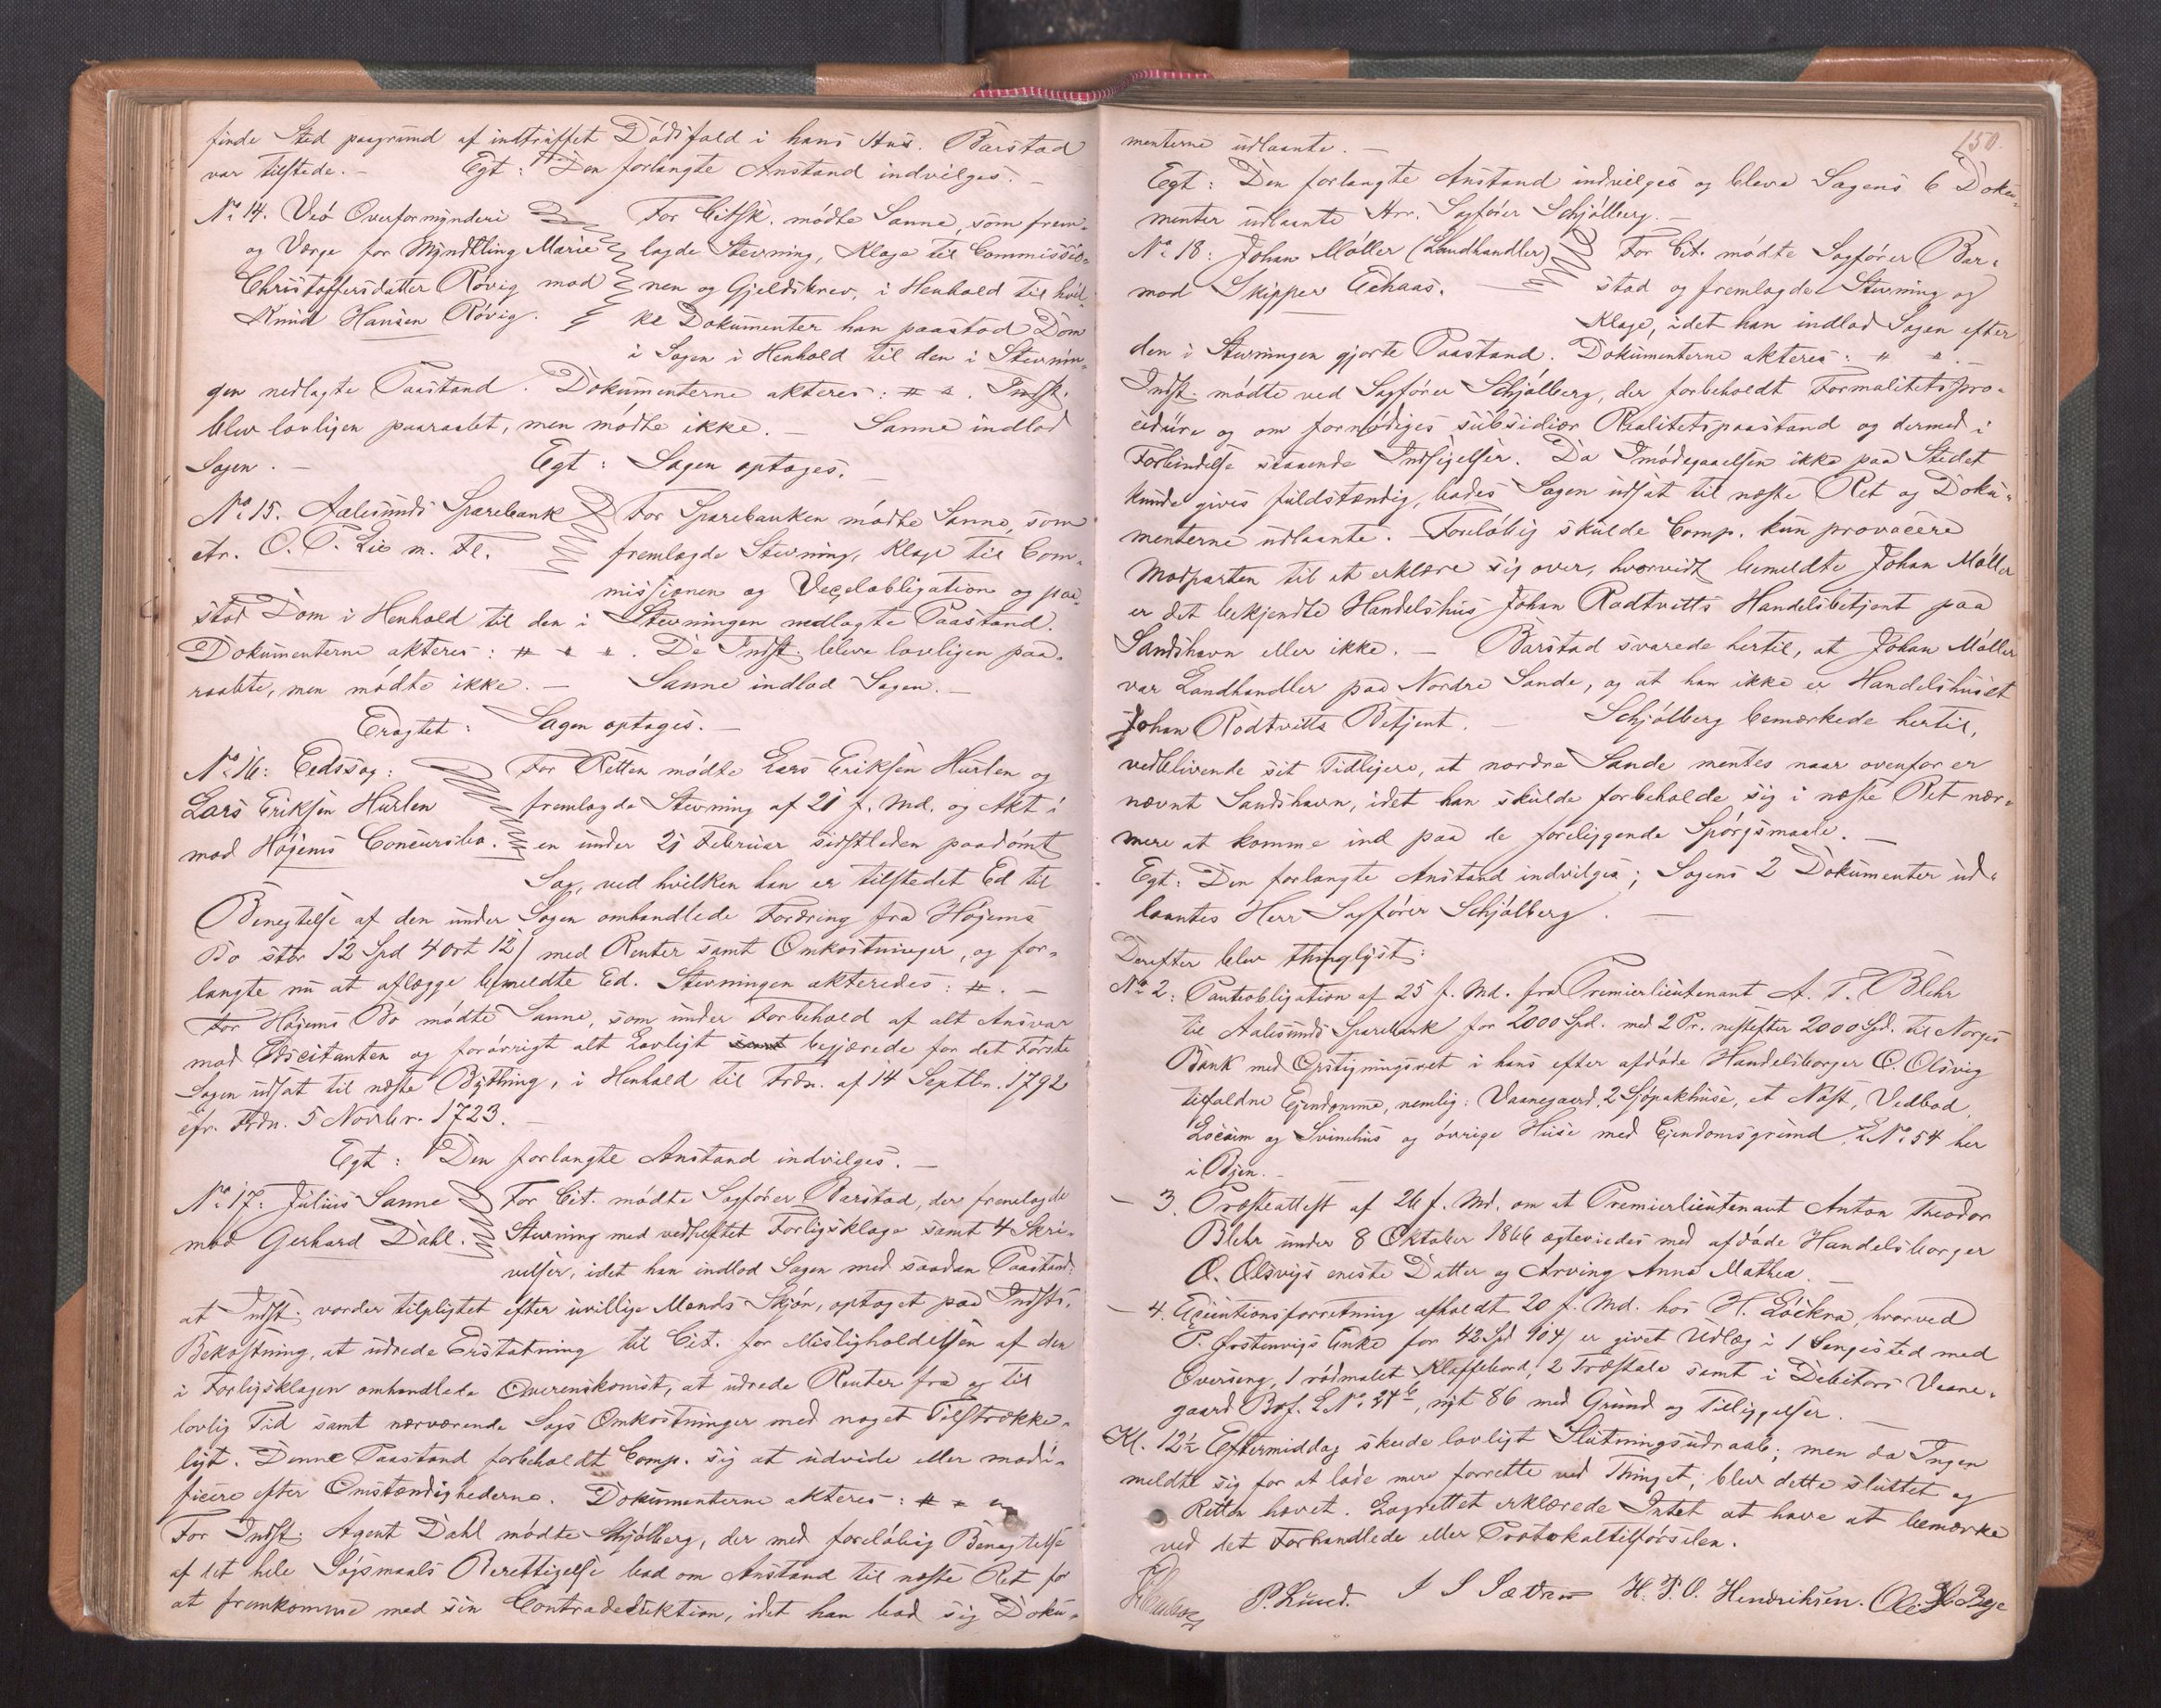 finde Sted paagrund af indtruffet Dödsfald i hans Hus. Barstad
var tilstede. – Egt: Den forlangte Anstand indvilges. –
No 14. Veö Overformynderi
og Værge for Myndtling Marie
Christoffersdatter Rövig mod
Knud Hansen Rövig.
For Citsk. mödte Sanne, som frem-
lagde Stevning, Klage til Commissio-
nen og Gjeldsbrev, i Henhold til hvil-
ke Dokumenter han paastod Dom
i Sagen i Henhold til den i Stevnin-
gen nedlagte Paastand. Dokumenterne akteres: # *. Indst.
blev lovligen paaraabt, men mödte ikke. – Sanne indlod
Sagen. – Egt: Sagen optages. –
No 15. Aalesunds Sparebank
ctr. O. T. Lie m. Fl.
For Sparebanken mödte Sanne, som
fremlagde Stevning, Klage til Com-
missionen og Vexelobligation og paa-
stod Dom i Henhold til den i Stevningen nedlagte Paastand.
Dokumenterne akteres: # * *. De Indst. bleve lovligen paa-
raabte, men mödte ikke. – Sanne indlod Sagen. –
Eragtet: Sagen optages. –
No 16: Eedssag:
Lars Eriksen Hurlen
mod Höjems Concursbo.
For Retten mödte Lars Eriksen Hurlen og
fremlagde Stevning af 21 f. Md. og Akt i
en under 21 Februar sidstleden paadömt
Sag, ved hvilken han er tilstedet Ed til
Benegtelse af den under Sagen omhandlede Fordring fra Höjems
Bo stor 12 Spd 4 Ort 12 / med Renter samt Omkostninger, og for-
langte nu at aflægge bemeldte Ed. Stevningen akteredes: #. –
For Höjems Bo mödte Sanne, som under Forbehold af alt Ansvar
mod Edscitanten og forövrigt alt Lovligt begjærede for det Förste
Sagen udsat til næste Bything, i Henhold til Frdn. af 14 Septbr. 1792
cfr. Frdn. 5 Novbr. 1723. –
Egt: Den forlangte Anstand indvilges. –
No 17: Julius Sanne
mod Gerhard Dahl.
For Cit. mödte Sagförer Barstad, der fremlagde
Stevning med vedheftet Forligsklage samt 4 Skri-
velser, idet han indlod Sagen med saadan Paastand:
at Indst. vorder tilpligtet efter uvillige Mænds Skjön, optaget paa Indsts.
Bekostning, at udrede Erstatning til Cit. for Misligholdelsen af den
i Forligsklagen omhandlede Overenskomst, at udrede Renter fra og til
lovlig Tid samt nærværende Sags Omkostninger med noget Tilstrække-
ligt. Denne Paastand forbeholdt Comp. sig at udvide eller modi-
ficere efter Omstændighederne. Dokumenterne akteres: # *
For Indst. Agent Dahl mödte Schjölberg, der med foreløbig Benægtelse
af det hele Sögsmaals Berettigelse bad om Anstand til næste Ret for
at fremkomme med sin Contradeduktion, idet han bad sig Doku-
150.
menterne udlaante. –
Egt: Den forlangte Anstand indvilges og bleve Sagens 6 Doku-
menter udlaante Hrr. Sagförer Schjölberg. –
No 18: Johan Möller (Landhandler)
mod Skipper Echaas. –
For Cit. mödte Sagförer Bar-
stad og fremlagde Stevning og
Klage, idet han indlod Sagen efter
den i Stevningen gjorte Paastand. Dokumenterne akteres: # *. –
Indst. mödte ved Sagförer Schjölberg, der forbeholdt Formalitetspro-
cedüre og om fornödiges subsidiær Realitetspaastand og dermed i
Forbindelse staaende Indsigelser. Da Imödegaaelsen ikke paa Stedet
kunde gives fuldstændig, bades Sagen udsat til næste Ret og Doku-
menterne udlaante. Foreløbig skulde Comp. kun provocere
Modparten til at erklære sig over, hvorvidt bemeldte Johan Möller
er det bekjendte Handelshus Johan Rödtvitts Handelsbetjent paa
Sandshavn eller ikke. – Barstad svarede hertil, at Johan Möller
var Landhandler paa Nordre Sande, og at han ikke er Handelshuset
Johan Rödtvitts Betjent. – Schjölberg bemærkede hertil,
vedblivende sit Tidligere, at nordre Sande mentes naar ovenfor er
nævnt Sandshavn, idet han skulde forbeholde sig i næste Ret nær-
mere at komme ind paa de foreliggende Spörgsmaale. –
Egt: Den forlangte Anstand indvilges; Sagens 2 Dokumenter ud-
laantes Herr Sagförer Schjölberg. –
Derefter blev thinglyst:
No 2: Panteobligation af 25 f. Md. fra Premierlieutenant A. T. Blehr
til Aalesunds Sparebank for 2000 Spd. med 2 Pr. næstefter 2000 Spd. til Norges
Bank med Opstigningsret i hans efter afdöde Handelsborger O. Olsvig
tilfaldne Ejendomme, nemlig: Vaanegaard, 2 Sjöpakhuse, et Nöst, Vedbod,
Locum og Svinehus og övrige Huse med Ejendomsgrund, L No 54 her
i Byen. –
– 3. Præsteattest af 26 f. Md. om at Premierlieutenant Anton Theodor
Blehr under 8 Oktober 1866 ægteviedes med afdöde Handelsborger
O. Olsvigs eneste Datter og Arving Anna Mathea. –
– 4. Executionsforretning afholdt 20 f. Md. hos H. Löckra, hvorved
P. Enke for 42 Spd 104 / er givet Udlæg i 1 Sengested med
Overseng, 1 rödmalet Klaffebord, 2 Træstole samt i Debitors Vaane-
gaard Brf. L No 24 b, nyt 86 med Grund og Tilliggelser. –
Kl. 12½ Eftermiddag skede lovligt Slutningsudraab; men da Ingen
meldte sig for at lade mere forrette ved Thinget, blev dette sluttet og
Retten hævet. Lagrettet erklærede Intet at have at bemærke
ved det Forhandlede eller Protokoltilförselen.
P. Lund. I S Sætren H. P. O. Hendriksen.